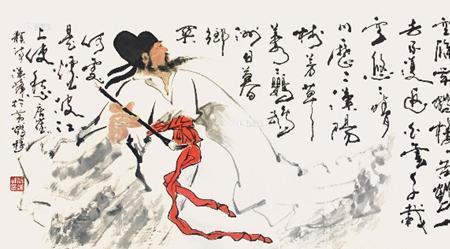 空餘黃鶴樓黃鶴一
去不復返白雲千載
空悠悠晴
川歷歷漢陽
樹芳草
萋萋鸚鵡
洲日暮
鄉
關
何處
是煙波江
上使人愁